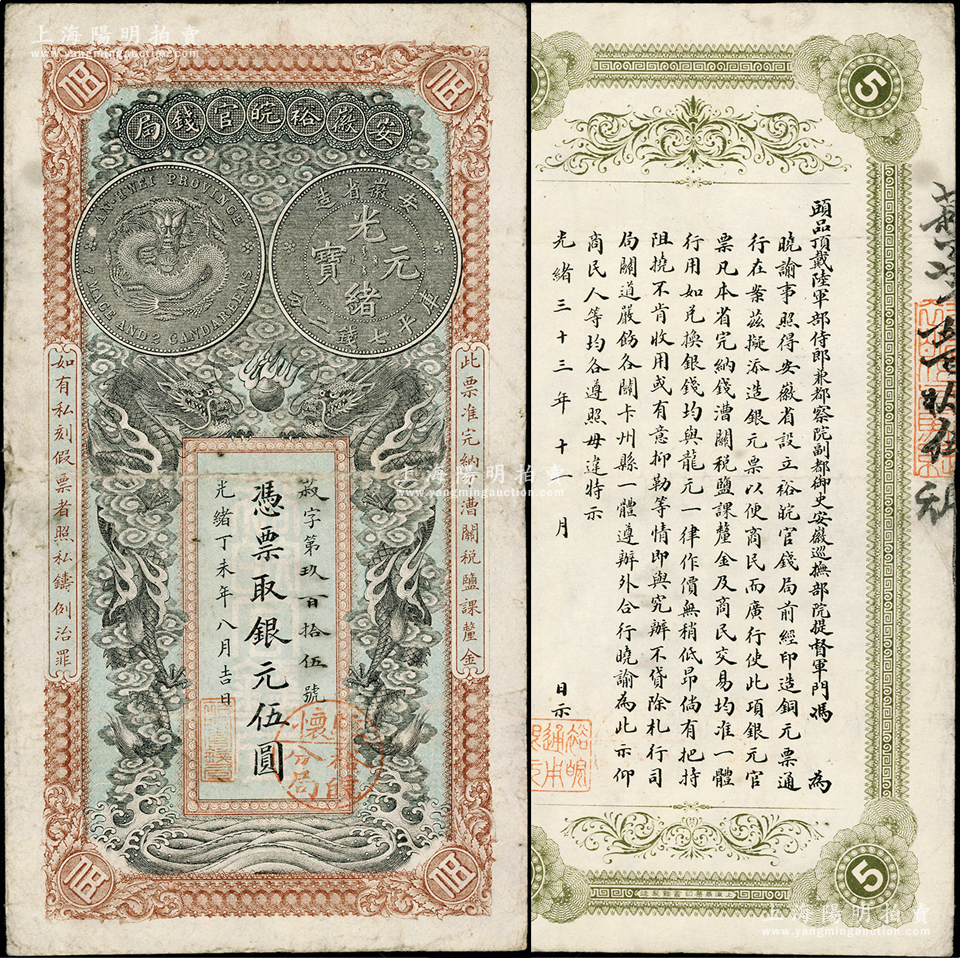 上海陽明拍賣
www.yangmingauction.com
安徽裕皖官錢局
AN-HWEI PROVINCE
7 MACE AND 2 CANDAREENS
安徽省造
光緒元寶
庫平七錢二分
此票准完納錢漕關稅鹽課釐金
如有私刻假票者照私鑄例治罪
菽字第玖百拾伍號
憑票取銀元伍圓
光緒丁未年八月吉日
懷
分局
伍
伍
伍
伍
上海陽明拍賣
www.yangmingauction.com
5
頭品頂戴陸軍部侍郎兼都察院副都御史安徽巡撫部院提督軍門馮 為
曉諭事照得安徽省設立裕皖官錢局前經印造銅元票通
行在案茲擬添造銀元票以便商民而廣行使此項銀元官
票凡本省完納錢漕關稅鹽課釐金及商民交易均准一體
行用如兌換銀錢均與龍元一律作價無稍低昂倘有把持
阻撓不肯收用或有意抑勒等情即與究辦不貸除札行司
局關道嚴飭各關卡州縣一體遵辦外合行曉諭為此示仰
商民人等均各遵照毋違特示
光緒三十三年十一月 日示
裕皖
通用
銀元
5
上海陽明拍賣
www.yangmingauction.com